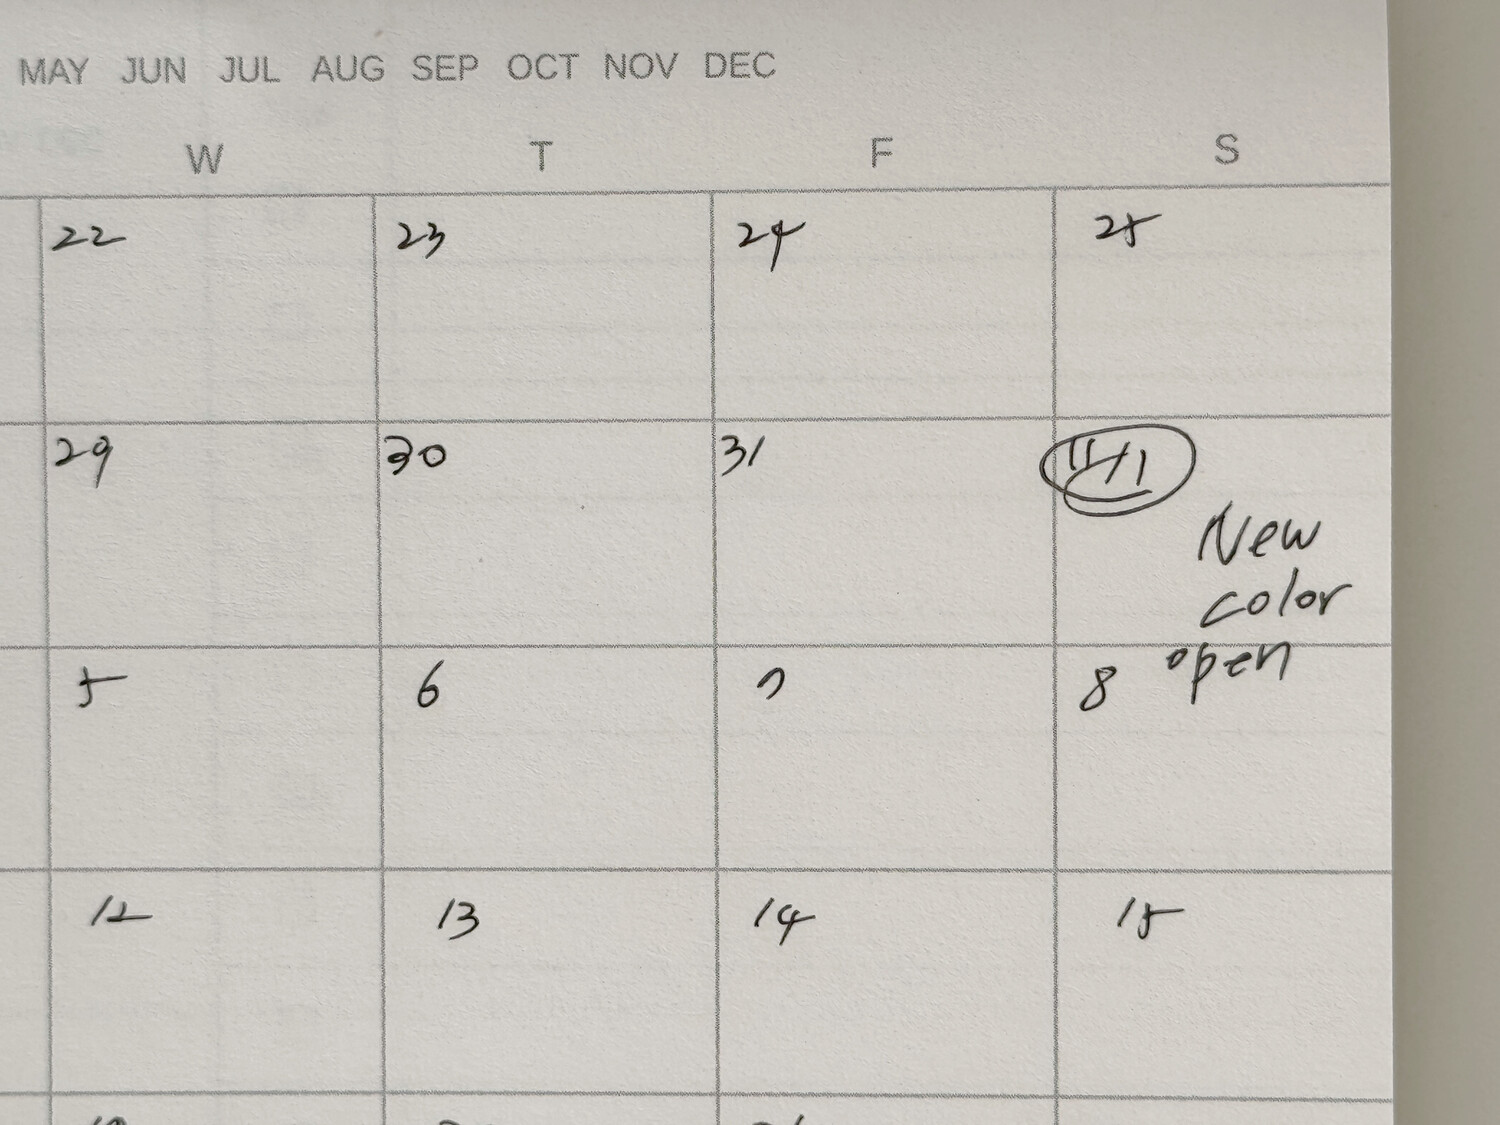 MAY JUN JUL AUG SEP OCT NOV DEC
W T F S
22 23 24 25
29 30 31 11/1
New
color
open
5 6 7 8
12 13 14 15